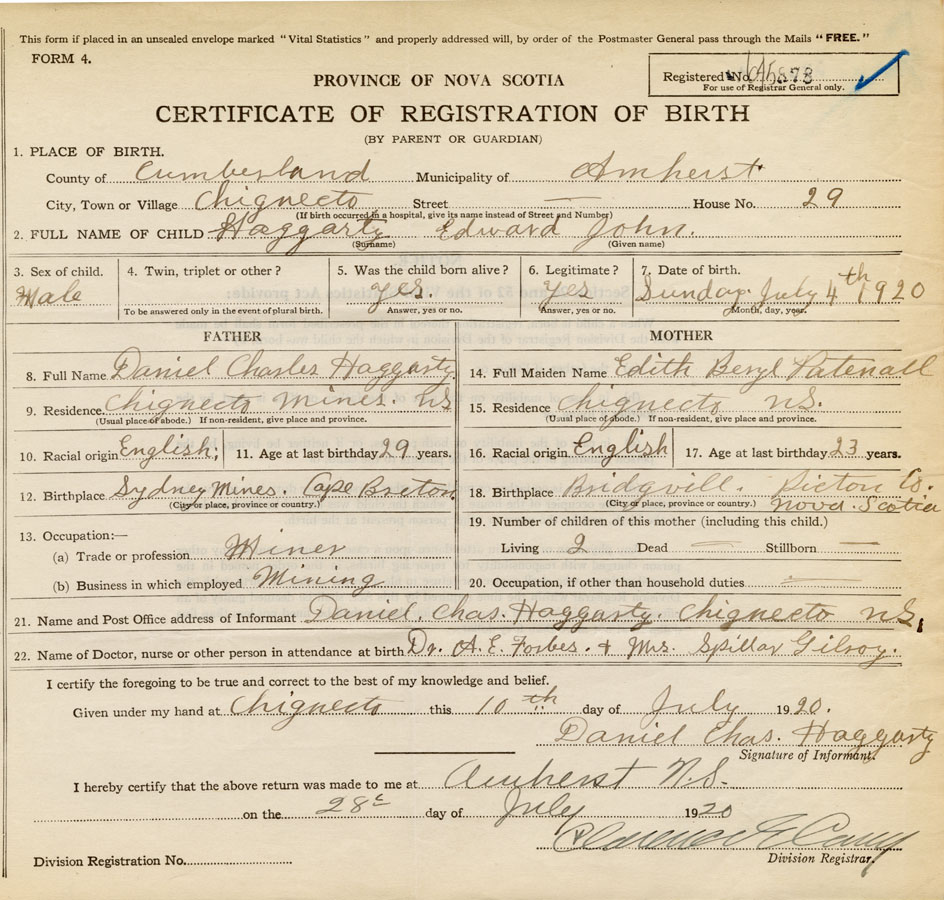 This form if placed in an unsealed envelope marked "Vital Statistics" and properly addressed will, by order of the Postmaster General pass through the Mails "FREE."
FORM 4.
PROVINCE OF NOVA SCOTIA
Registered No. 45878
For use of Registrar General only.
CERTIFICATE OF REGISTRATION OF BIRTH
(BY PARENT OR GUARDIAN)
1. PLACE OF BIRTH.
County of Cumberland Municipality of Amherst
City, Town or Village Chignecto Street — House No. 29
(If birth occurred in a hospital, give its name instead of Street and Number)
2. FULL NAME OF CHILD Haggarty Edward John.
(Surname) (Given name)
3. Sex of child. 4. Twin, triplet or other? 5. Was the child born alive? 6. Legitimate? 7. Date of birth.
Male yes. yes Sunday. July 4th 1920
To be answered only in the event of plural birth. Answer, yes or no. Answer, yes or no. Month, day, year.
FATHER MOTHER
8. Full Name Daniel Charles Haggarty 14. Full Maiden Name Edith Beryl Patenall
9. Residence. Chignecto Mines. NS 15. Residence Chignecto NS.
(Usual place of abode.) If non-resident, give place and province. (Usual place of abode.) If non-resident, give place and province.
10. Racial origin English; 11. Age at last birthday 29 years. 16. Racial origin English 17. Age at last birthday 23 years.
12. Birthplace Sydney Mines. Cape Breton 18. Birthplace Bridgvill. Pictou Co.
(City or place, province or country.) (City or place, province or country.) Nova Scotia
13. Occupation:— 19. Number of children of this mother (including this child.)
(a) Trade or profession Miner Living 2 Dead — Stillborn —
(b) Business in which employed Mining 20. Occupation, if other than household duties —
21. Name and Post Office address of Informant Daniel. Chas. Haggarty Chignecto NS,
22. Name of Doctor, nurse or other person in attendance at birth Dr. A. E. Forbes. + Mrs. Spillar Gilroy.
I certify the foregoing to be true and correct to the best of my knowledge and belief.
Given under my hand at Chignecto this 10th day of July 1920.
Daniel Chas. Haggarty
Signature of Informant.
I hereby certify that the above return was made to me at Amherst N.S.
on the 28 day of July 1920
Clarence
Division Registration No. Division Registrar.